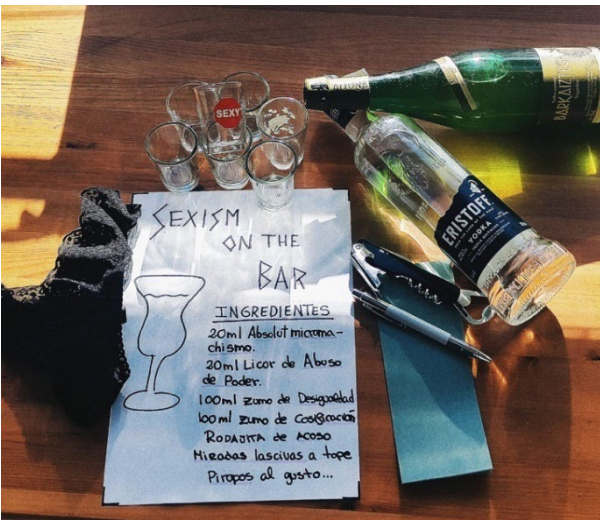 SEXY
ERISTOFF
VODKA
SEXISM
ON THE
BAR
INGREDIENTES
20ml Absolut microma-
chismo.
20ml Licor de Abuso
de Poder.
100ml zumo de Desigualdad
100ml zumo de Cosificación
RODAJITA de ACOSO
Miradas lascivas a tope
Piropos al gusto...